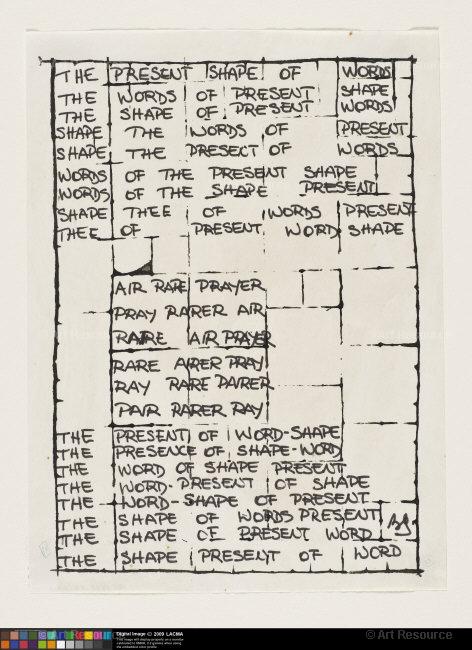 THE PRESENT SHAPE OF WORDS
THE WORDS OF PRESENT SHAPE
THE SHAPE OF PRESENT WORDS
SHAPE THE WORDS OF PRESENT
SHAPE THE PRESECT OF WORDS
WORDS OF THE PRESENT SHAPE
WORDS OF THE SHAPE PRESENT
SHAPE THEE OF WORDS PRESENT
THEE OF PRESENT WORD SHAPE
AIR RARE PRAYER
PRAY RARER AIR
RARE AIR PRAYER
RARE AIRER PRAY
RAY RARE PAIRER
PAIR RARER RAY
THE PRESENT OF WORD-SHAPE
THE PRESENCE OF SHAPE-WORD
THE WORD OF SHAPE PRESENT
THE WORD-PRESENT OF SHAPE
THE WORD-SHAPE OF PRESENT
THE SHAPE OF WORDS PRESENT
THE SHAPE OF PRESENT WORD
THE SHAPE PRESENT OF WORD
Digital Image © 2009 LACMA
© Art Resource